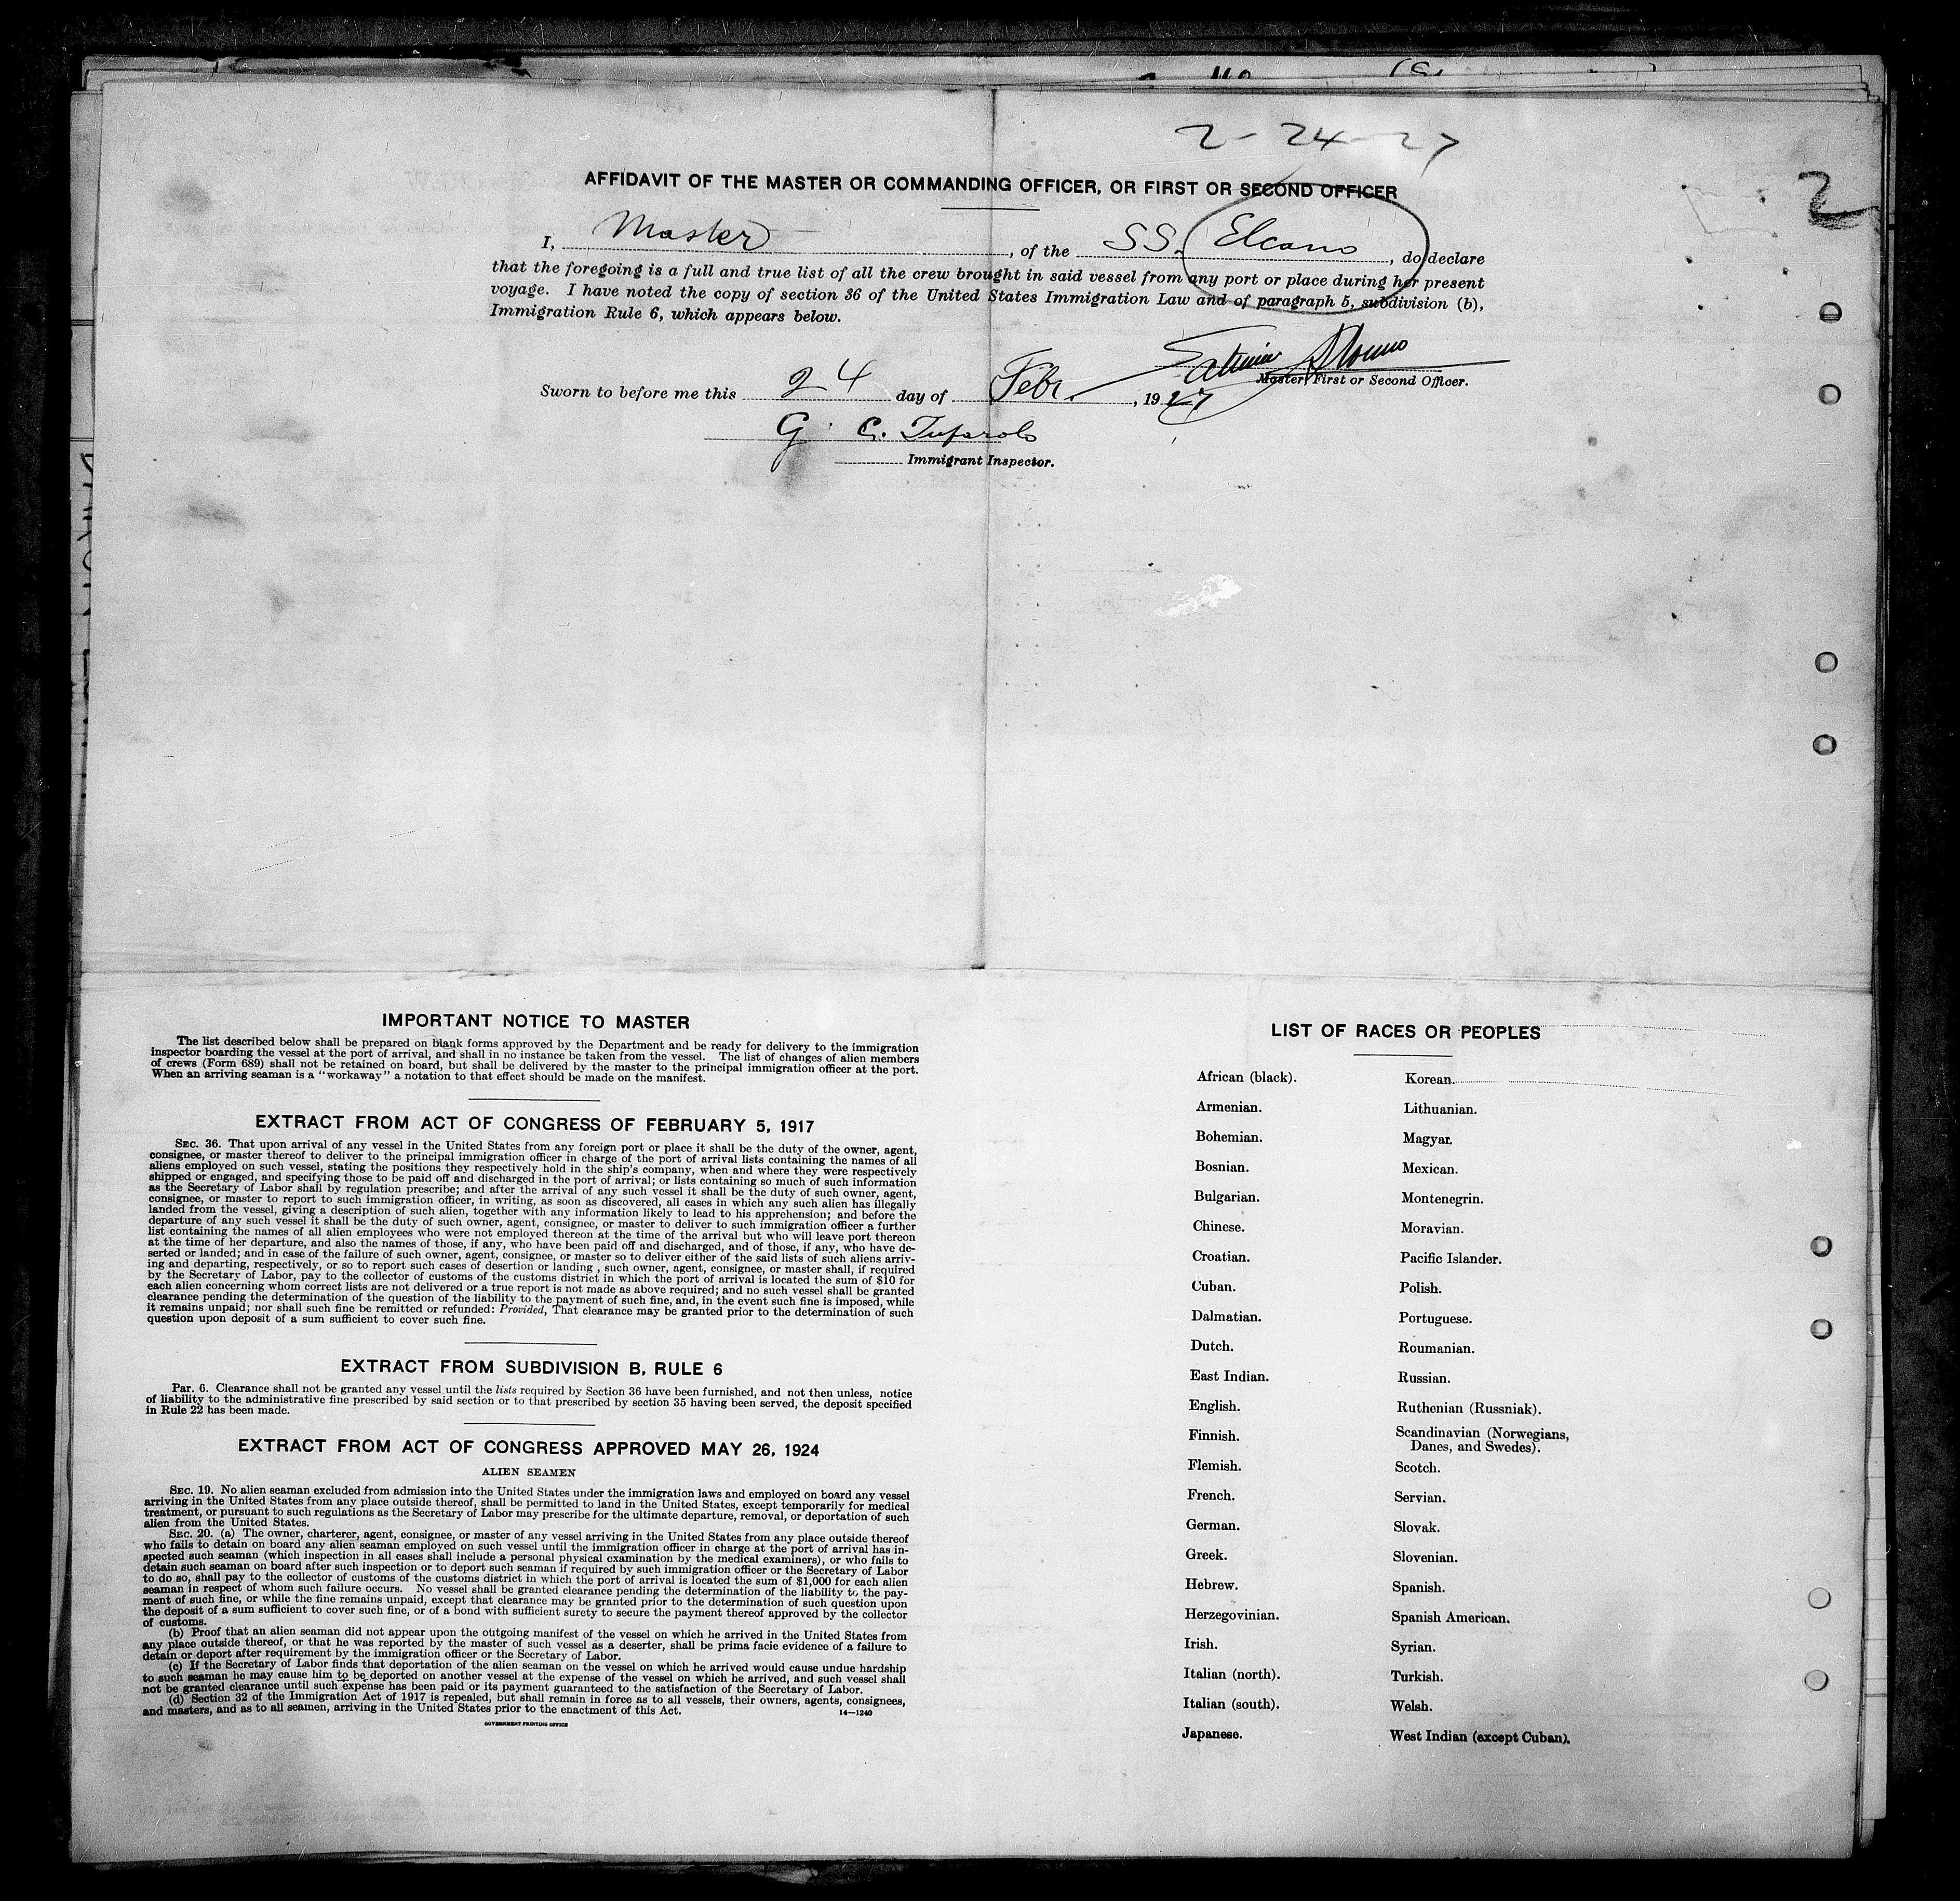 2-24-27
2
AFFIDAVIT OF THE MASTER OR COMMANDING OFFICER, OR FIRST OR SECOND OFFICER
I, Master, of the SS. Elcano, do declare
that the foregoing is a full and true list of all the crew brought in said vessel from any port or place during her present
voyage. I have noted the copy of section 36 of the United States Immigration Law and of paragraph 5, subdivision (b),
Immigration Rule 6, which appears below.
Master, First or Second Officer.
Sworn to before me this 24 day of Febr., 1927
G. C.
Immigrant Inspector.
IMPORTANT NOTICE TO MASTER
The list described below shall be prepared on blank forms approved by the Department and be ready for delivery to the immigration
inspector boarding the vessel at the port of arrival, and shall in no instance be taken from the vessel. The list of changes of alien members
of crews (Form 689) shall not be retained on board, but shall be delivered by the master to the principal immigration officer at the port.
When an arriving seaman is a "workaway" a notation to that effect should be made on the manifest.
EXTRACT FROM ACT OF CONGRESS OF FEBRUARY 5, 1917
SEC. 36. That upon arrival of any vessel in the United States from any foreign port or place it shall be the duty of the owner, agent,
consignee, or master thereof to deliver to the principal immigration officer in charge of the port of arrival lists containing the names of all
aliens employed on such vessel, stating the positions they respectively hold in the ship's company, when and where they were respectively
shipped or engaged, and specifying those to be paid off and discharged in the port of arrival; or lists containing so much of such information
as the Secretary of Labor shall by regulation prescribe; and after the arrival of any such vessel it shall be the duty of such owner, agent,
consignee, or master to report to such immigration officer, in writing, as soon as discovered, all cases in which any such alien has illegally
landed from the vessel, giving a description of such alien, together with any information likely to lead to his apprehension; and before the
departure of any such vessel it shall be the duty of such owner, agent, consignee, or master to deliver to such immigration officer a further
list containing the names of all alien employees who were not employed thereon at the time of the arrival but who will leave port thereon
at the time of her departure, and also the names of those, if any, who have been paid off and discharged, and of those, if any, who have de-
serted or landed; and in case of the failure of such owner, agent, consignee, or master so to deliver either of the said lists of such aliens arriv-
ing and departing, respectively, or so to report such cases of desertion or landing , such owner, agent, consignee, or master shall, if required
by the Secretary of Labor, pay to the collector of customs of the customs district in which the port of arrival is located the sum of $10 for
each alien concerning whom correct lists are not delivered or a true report is not made as above required; and no such vessel shall be granted
clearance pending the determination of the question of the liability to the payment of such fine, and, in the event such fine is imposed, while
it remains unpaid; nor shall such fine be remitted or refunded: Provided, That clearance may be granted prior to the determination of such
question upon deposit of a sum sufficient to cover such fine.
EXTRACT FROM SUBDIVISION B, RULE 6
PAR. 6. Clearance shall not be granted any vessel until the lists required by Section 36 have been furnished, and not then unless, notice
of liability to the administrative fine prescribed by said section or to that prescribed by section 35 having been served, the deposit specified
in Rule 22 has been made.
EXTRACT FROM ACT OF CONGRESS APPROVED MAY 26, 1924
ALIEN SEAMEN
SEC. 19. No alien seaman excluded from admission into the United States under the immigration laws and employed on board any vessel
arriving in the United States from any place outside thereof, shall be permitted to land in the United States, except temporarily for medical
treatment, or pursuant to such regulations as the Secretary of Labor may prescribe for the ultimate departure, removal, or deportation of such
alien from the United States.
SEC. 20. (a) The owner, charterer, agent, consignee, or master of any vessel arriving in the United States from any place outside thereof
who fails to detain on board any alien seaman employed on such vessel until the immigration officer in charge at the port of arrival has in-
spected such seaman (which inspection in all cases shall include a personal physical examination by the medical examiners), or who fails to
detain such seaman on board after such inspection or to deport such seaman if required by such immigration officer or the Secretary of Labor
to do so, shall pay to the collector of customs of the customs district in which the port of arrival is located the sum of $1,000 for each alien
seaman in respect of whom such failure occurs. No vessel shall be granted clearance pending the determination of the liability to the pay-
ment of such fine, or while the fine remains unpaid, except that clearance may be granted prior to the determination of such question upon
the deposit of a sum sufficient to cover such fine, or of a bond with sufficient surety to secure the payment thereof approved by the collector
of customs.
(b) Proof that an alien seaman did not appear upon the outgoing manifest of the vessel on which he arrived in the United States from
any place outside thereof, or that he was reported by the master of such vessel as a deserter, shall be prima facie evidence of a failure to
detain or deport after requirement by the immigration officer or the Secretary of Labor.
(c) If the Secretary of Labor finds that deportation of the alien seaman on the vessel on which he arrived would cause undue hardship
to such seaman he may cause him to be deported on another vessel at the expense of the vessel on which he arrived, and such vessel shall
not be granted clearance until such expense has been paid or its payment guaranteed to the satisfaction of the Secretary of Labor.
(d) Section 32 of the Immigration Act of 1917 is repealed, but shall remain in force as to all vessels, their owners, agents, consignees,
and masters, and as to all seamen, arriving in the United States prior to the enactment of this Act. 14—1240
GOVERNMENT PRINTING OFFICE
LIST OF RACES OR PEOPLES
African (black).
Armenian.
Bohemian.
Bosnian.
Bulgarian.
Chinese.
Croatian.
Cuban.
Dalmatian.
Dutch.
East Indian.
English.
Finnish.
Flemish.
French.
German.
Greek.
Hebrew.
Herzegovinian.
Irish.
Italian (north).
Italian (south).
Japanese.
Korean.
Lithuanian.
Magyar.
Mexican.
Montenegrin.
Moravian.
Pacific Islander.
Polish.
Portuguese.
Roumanian.
Russian.
Ruthenian (Russniak).
Scandinavian (Norwegians,
Danes, and Swedes).
Scotch.
Servian.
Slovak.
Slovenian.
Spanish.
Spanish American.
Syrian.
Turkish.
Welsh.
West Indian (except Cuban).